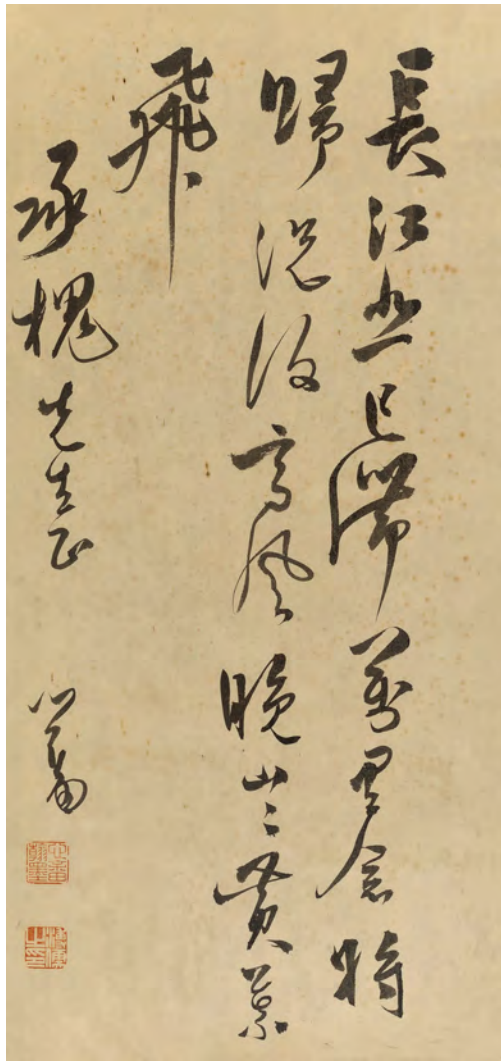 長江悲已滯萬里念將
歸況復高風晚山〻黃葉
飛
承槐先生正
心畬